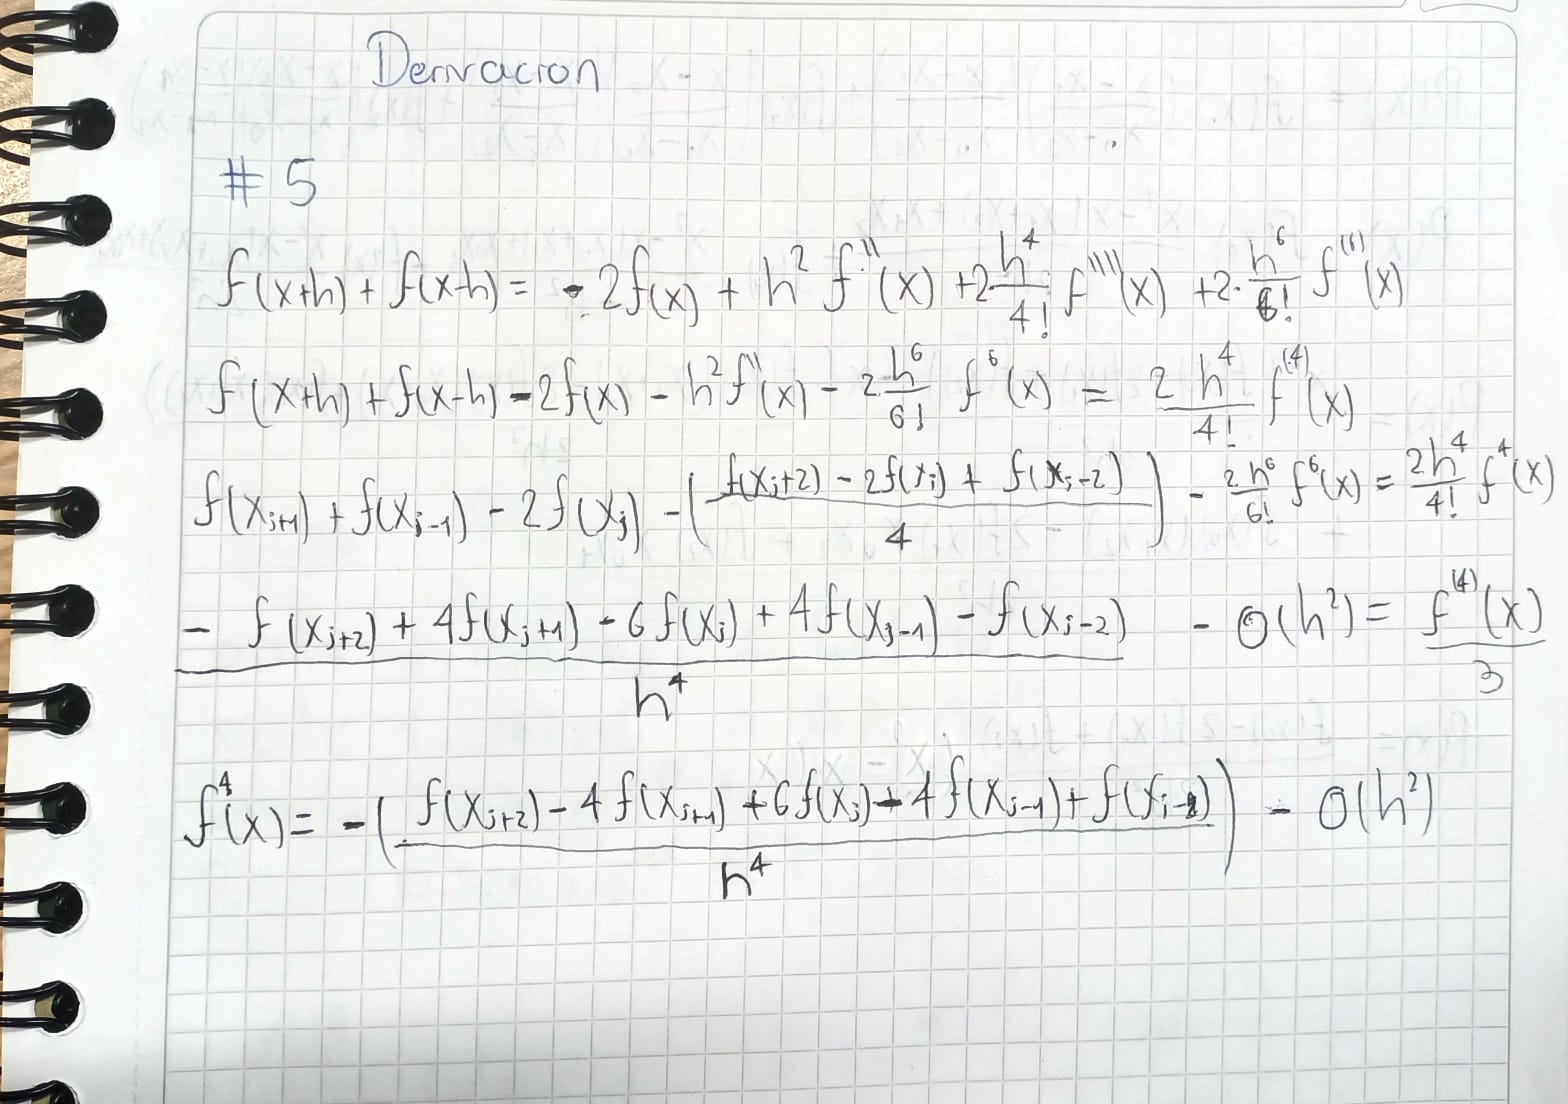 Derivacion
# 5
f(x+h) + f(x-h) = - 2f(x) + h² f''(x) + 2 h⁴/4! f''''(x) + 2· h⁶/6! f⁽⁶⁾(x)
f(x+h) + f(x-h) - 2f(x) - h² f''(x) - 2 h⁶/6! f⁶(x) = 2 h⁴/4! f⁽⁴⁾(x)
f(xⱼ₊₁) + f(xⱼ₋₁) - 2f(xⱼ) - ( (f(xⱼ+2) - 2f(xⱼ) + f(xⱼ-2))/4 ) - 2h⁶/6! f⁶(x) = 2h⁴/4! f⁴(x)
(- f(xⱼ₊₂) + 4f(xⱼ₊₁) - 6f(xⱼ) + 4f(xⱼ₋₁) - f(xⱼ₋₂))/h⁴ - O(h²) = f⁽⁴⁾(x)/3
f⁴(x) = - ( (f(xⱼ₊₂) - 4f(xⱼ₊₁) + 6f(xⱼ) - 4f(xⱼ₋₁) + f(xⱼ₋₂))/h⁴ ) - O(h²)